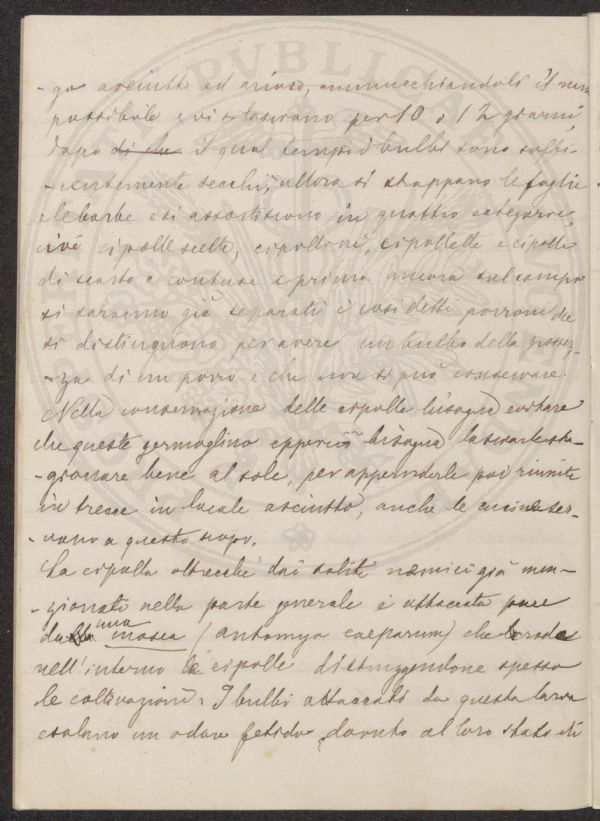 -go asciutto ed arioso, ammucchiandoli il meno
possibile e vi si lasciano per 10 o 12 giorni,
dopo di che il qual tempo i bulbi sono suffi-
-cientemente secchi, allora si strappano le foglie
e le barbe e si assortiscono in quattro categorie,
cioè cipolle scelte, cipolloni, cipollette e cipolle
di scarto o contuse e prima ancora sul campo
si saranno già separati i così detti porroni che
si distinguono per avere un bulbo della grossez-
-za di un porro e che non si può conservare.
Nella conservazione delle cipolle bisogna evitare
che queste germoglino epperciò bisogna lasciarle sta-
-gionare bene al sole, per appenderle poi riunite
in trecce in locale asciutto, anche le cucine ser-
-vono a questo scopo.
La cipolla oltrecchè dai soliti nemici già men-
-zionati nella parte generale è attaccata pure
da una mosca (antomya caeparum) che rode
nell'interno le cipolle distruggendone spesso
le coltivazioni. I bulbi attaccati da questa larva
esalano un odore fetido, dovuto al loro stato di